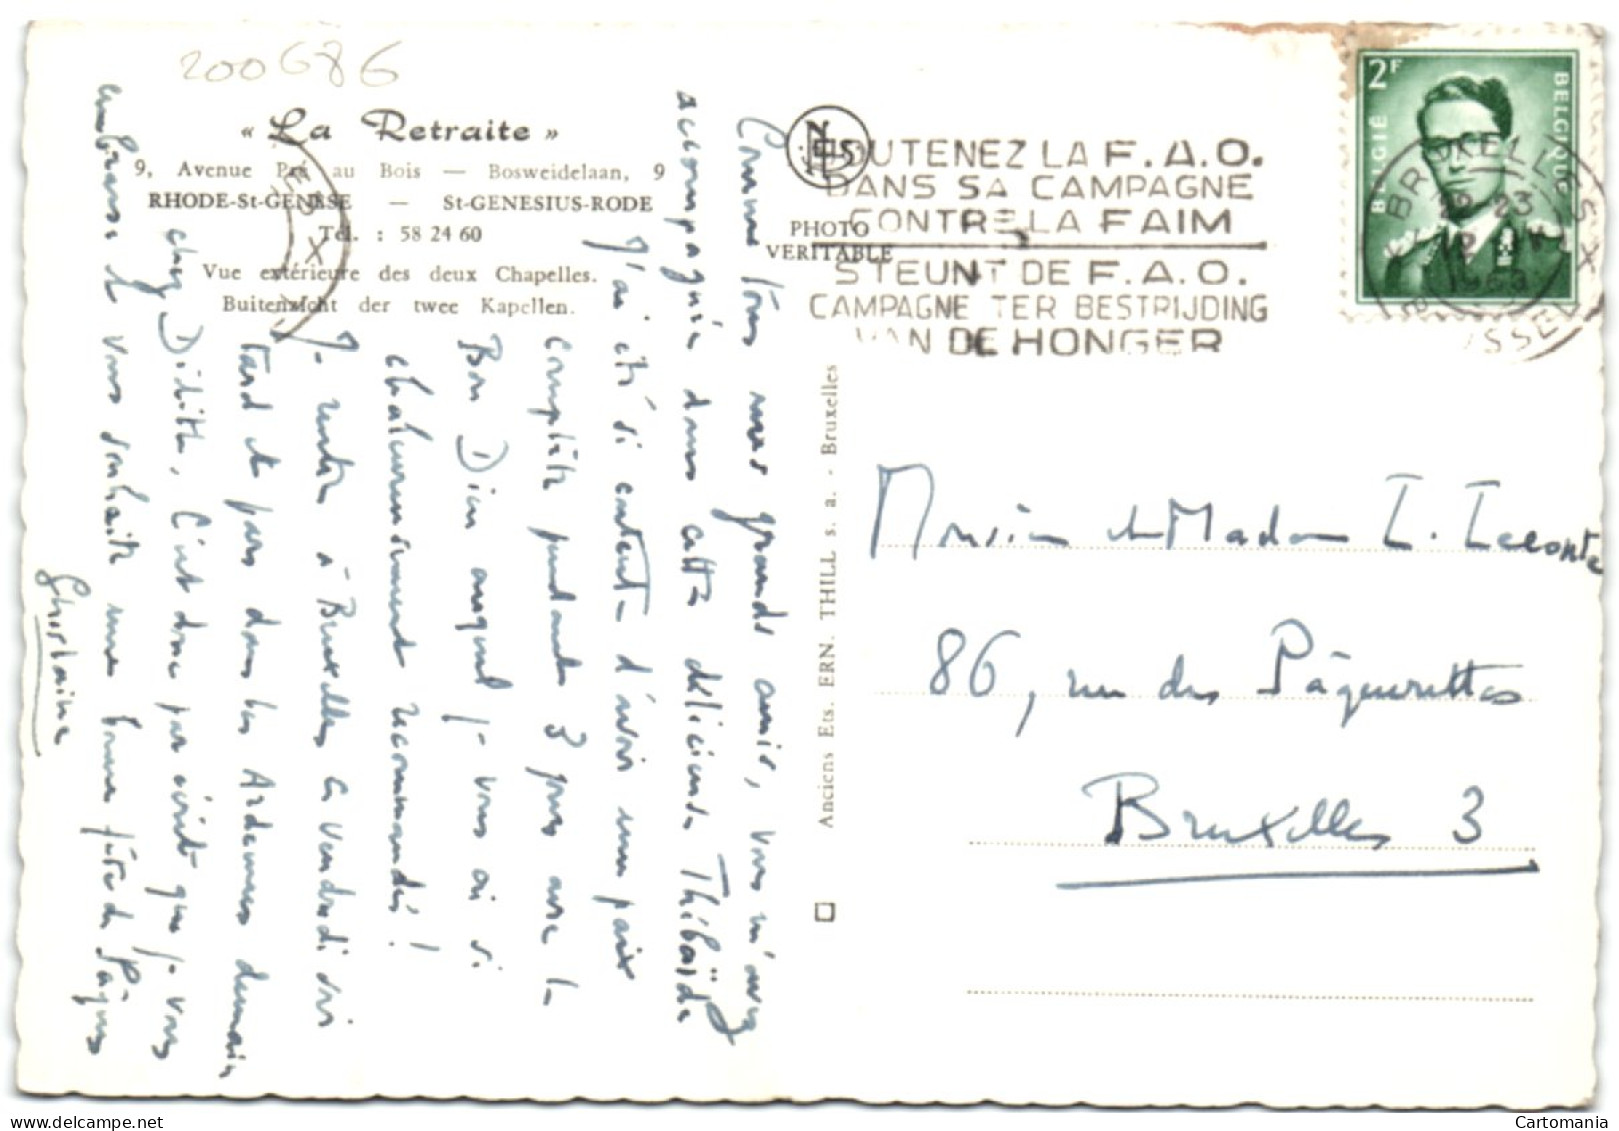 200686
« La Retraite »
9, Avenue Pré au Bois — Bosweidelaan, 9
RHODE-St-GENÈSE — St-GENESIUS-RODE
Tél. : 58 24 60
Vue extérieure des deux Chapelles.
Buitenzicht der twee Kapellen.
NELS
PHOTO
VERITABLE
SOUTENEZ LA F.A.O.
DANS SA CAMPAGNE
CONTRE LA FAIM
STEUNT DE F.A.O.
CAMPAGNE TER BESTRIJDING
VAN DE HONGER
2F
BELGIË
BELGIQUE
BRUXELLES X
22-23
1963
BRUSSEL X
Comme tous mes grands amis, vous m'avez
accompagnée dans cette délicieuse Thébaïde
J'ai été si contente d'avoir une paix
complète pendant 3 jours avec le
Bon Dieu auquel je vous ai si
chaleureusement recommandés!
Je rentre à Bruxelles ce vendredi soir
tard et pars dans les Ardennes demain
chez Didith, c'est donc par écrit que je vous
embrasse et vous souhaite une bonne fête de Pâques
Ghislaine
Anciens Ets. ERN. THILL s. a. - Bruxelles
Monsieur et Madame L. Lecomte
86, rue des Pâquerettes
Bruxelles 3
delcampe.net
Cartomania